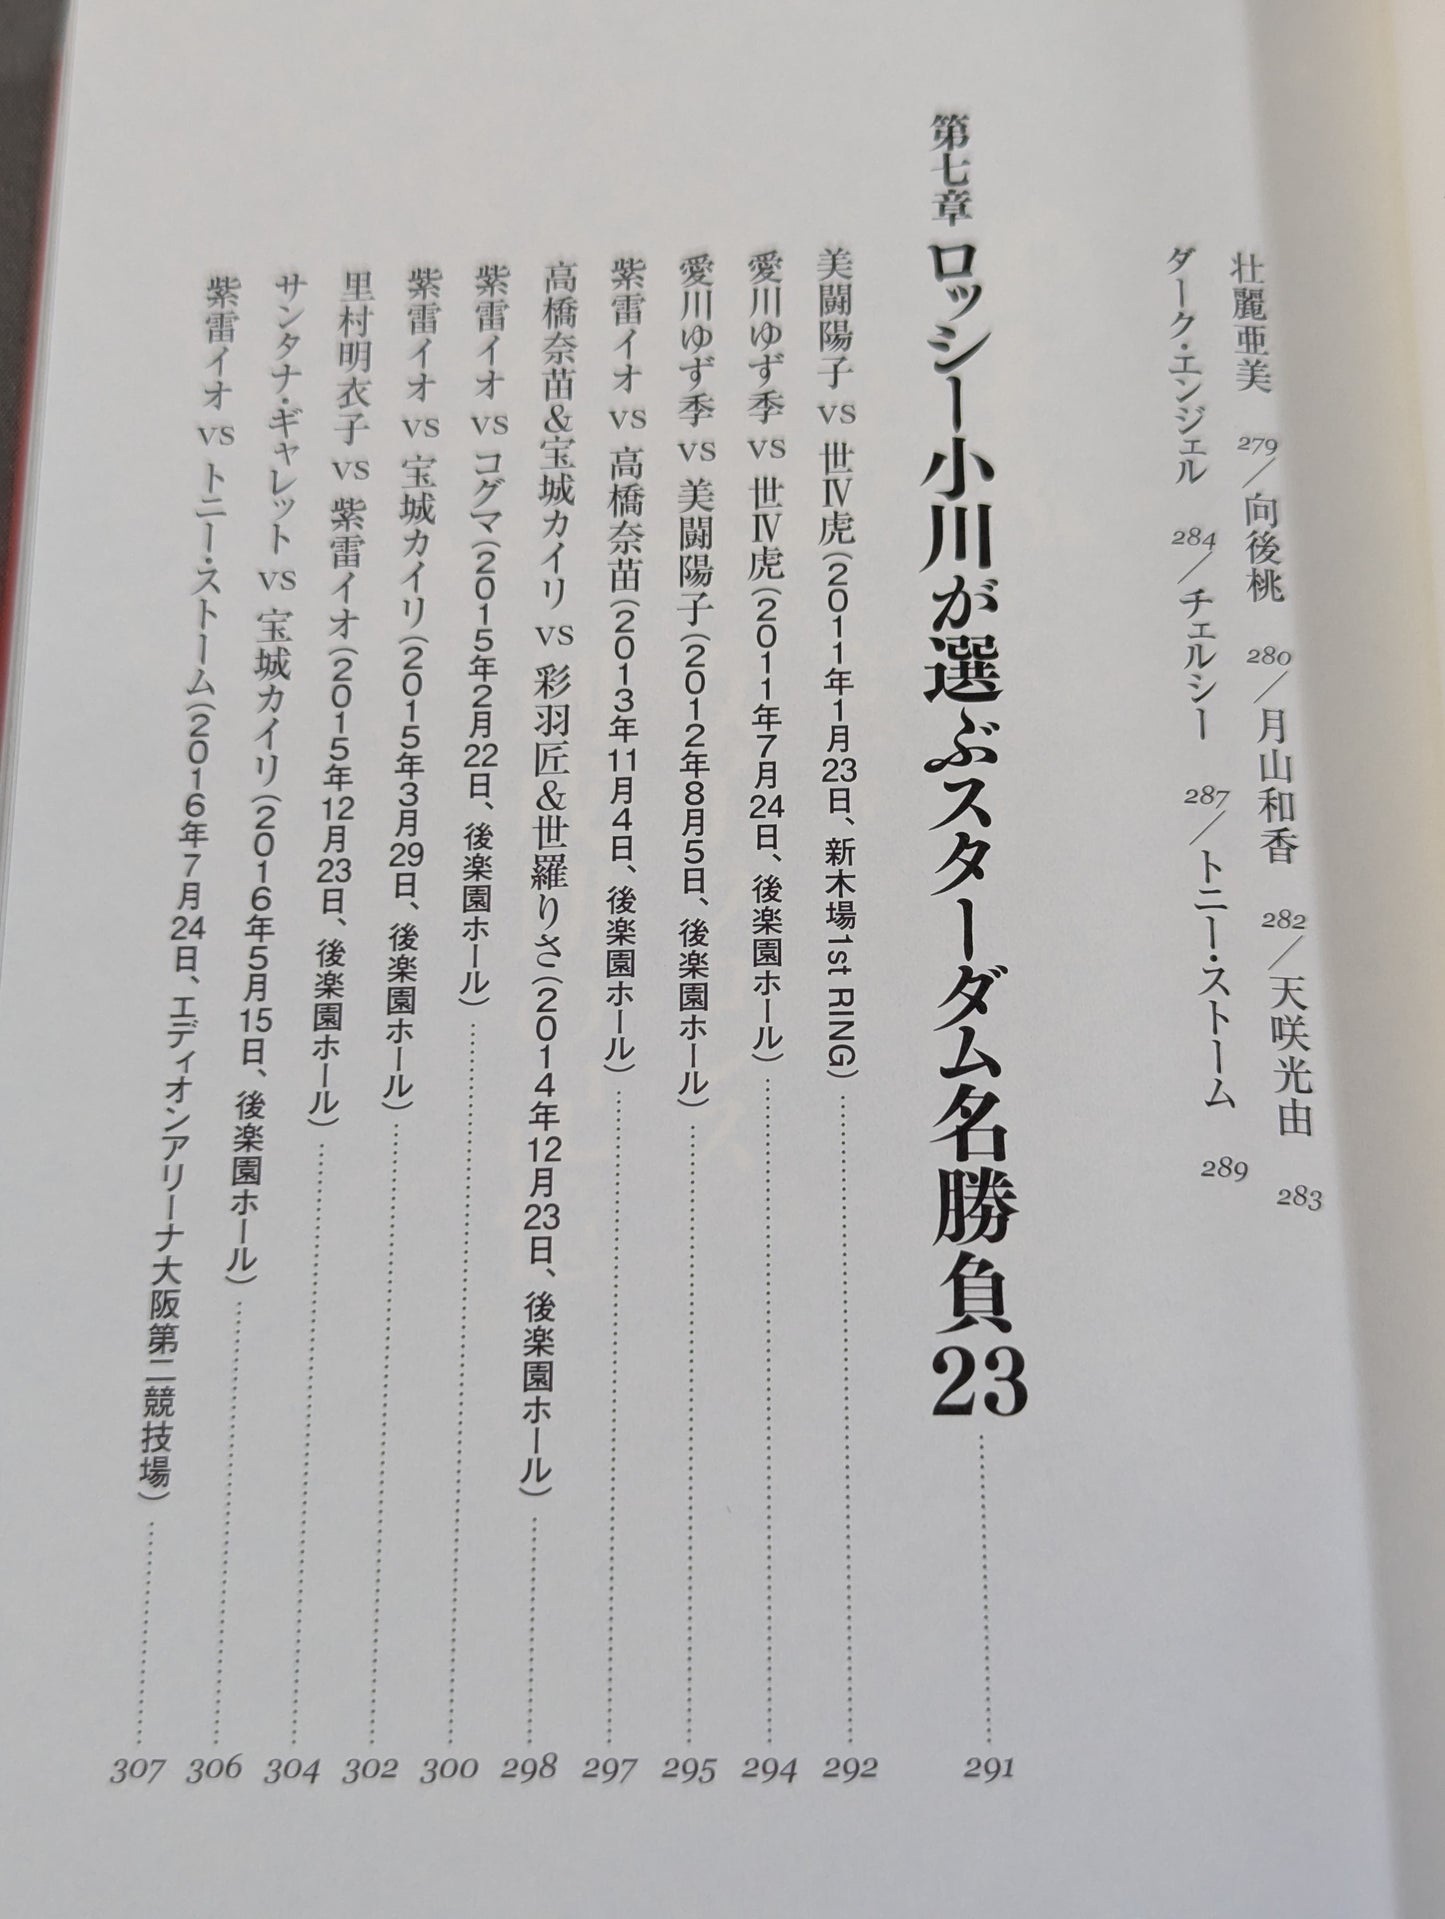 壮麗亜美 279／向後桃 280／月山和香 282／天咲光由 283
ダーク・エンジェル 284／チェルシー 287／トニー・ストーム 289
第七章 ロッシー小川が選ぶスターダム名勝負23 291
美闘陽子 vs 世Ⅳ虎（2011年1月23日、新木場1st RING） 292
愛川ゆず季 vs 世Ⅳ虎（2011年7月24日、後楽園ホール） 294
愛川ゆず季 vs 美闘陽子（2012年8月5日、後楽園ホール） 295
紫雷イオ vs 高橋奈苗（2013年11月4日、後楽園ホール） 297
高橋奈苗＆宝城カイリ vs 彩羽匠＆世羅りさ（2014年12月23日、後楽園ホール） 298
紫雷イオ vs コグマ（2015年2月22日、後楽園ホール） 300
紫雷イオ vs 宝城カイリ（2015年3月29日、後楽園ホール） 302
里村明衣子 vs 紫雷イオ（2015年12月23日、後楽園ホール） 304
サンタナ・ギャレット vs 宝城カイリ（2016年5月15日、後楽園ホール） 306
紫雷イオ vs トニー・ストーム（2016年7月24日、エディオンアリーナ大阪第二競技場） 307